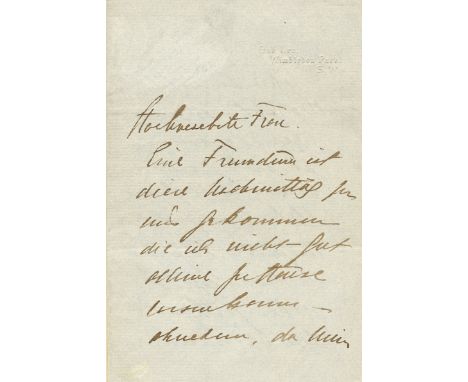 Wimbledon Park
S.W.
Hochverehrte Frau.
Eine Freundin ist
diese Nachmittag zu
uns gekommen
die ich nicht gut
alleine zu Hause
kann —
ohnedem, da